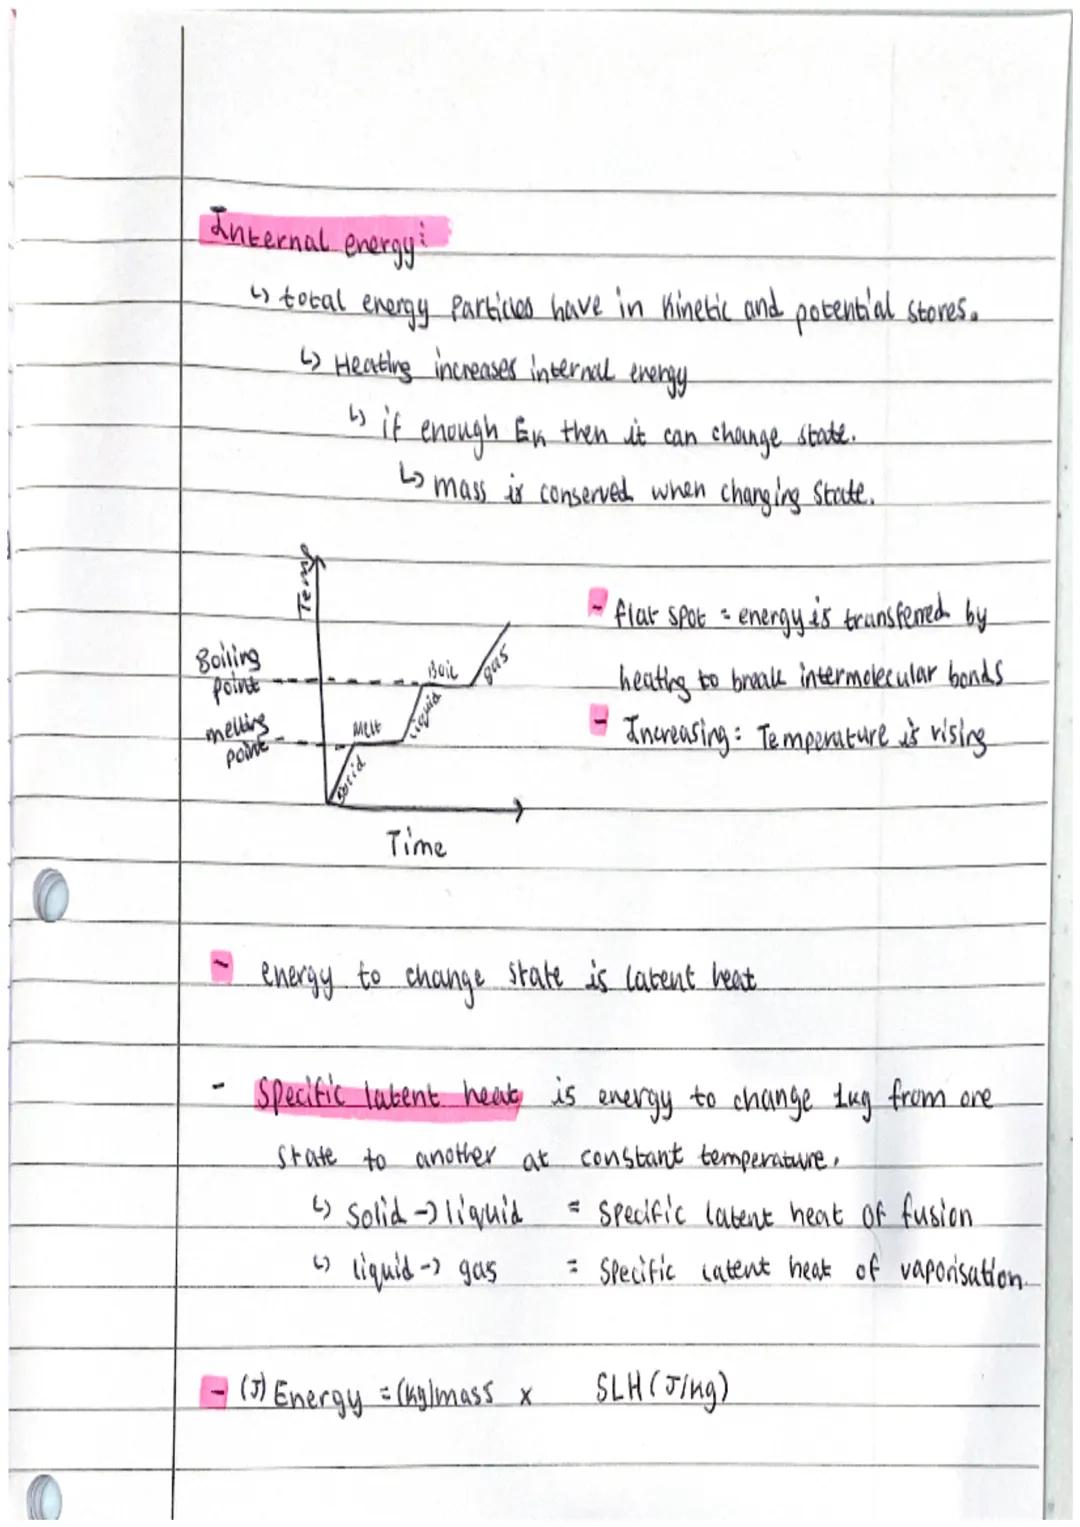 Internal energy:
↳ total energy particles have in kinetic and potential stores.
↳ Heating increases internal energy
↳ if enough Ek then it can change state.
↳ mass is conserved when changing state.
Temp
Boiling
point
melting
point
Solid
Melt
Liquid
Boil
gas
Time
- flat spot = energy is transferred by
heating to break intermolecular bonds
- Increasing: Temperature is rising
- energy to change state is latent heat
- Specific latent heat is energy to change 1kg from one
state to another at constant temperature.
↳ solid → liquid = specific latent heat of fusion
↳ liquid → gas = specific latent heat of vaporisation.
- (J) Energy = (kg) mass x SLH (J/kg)